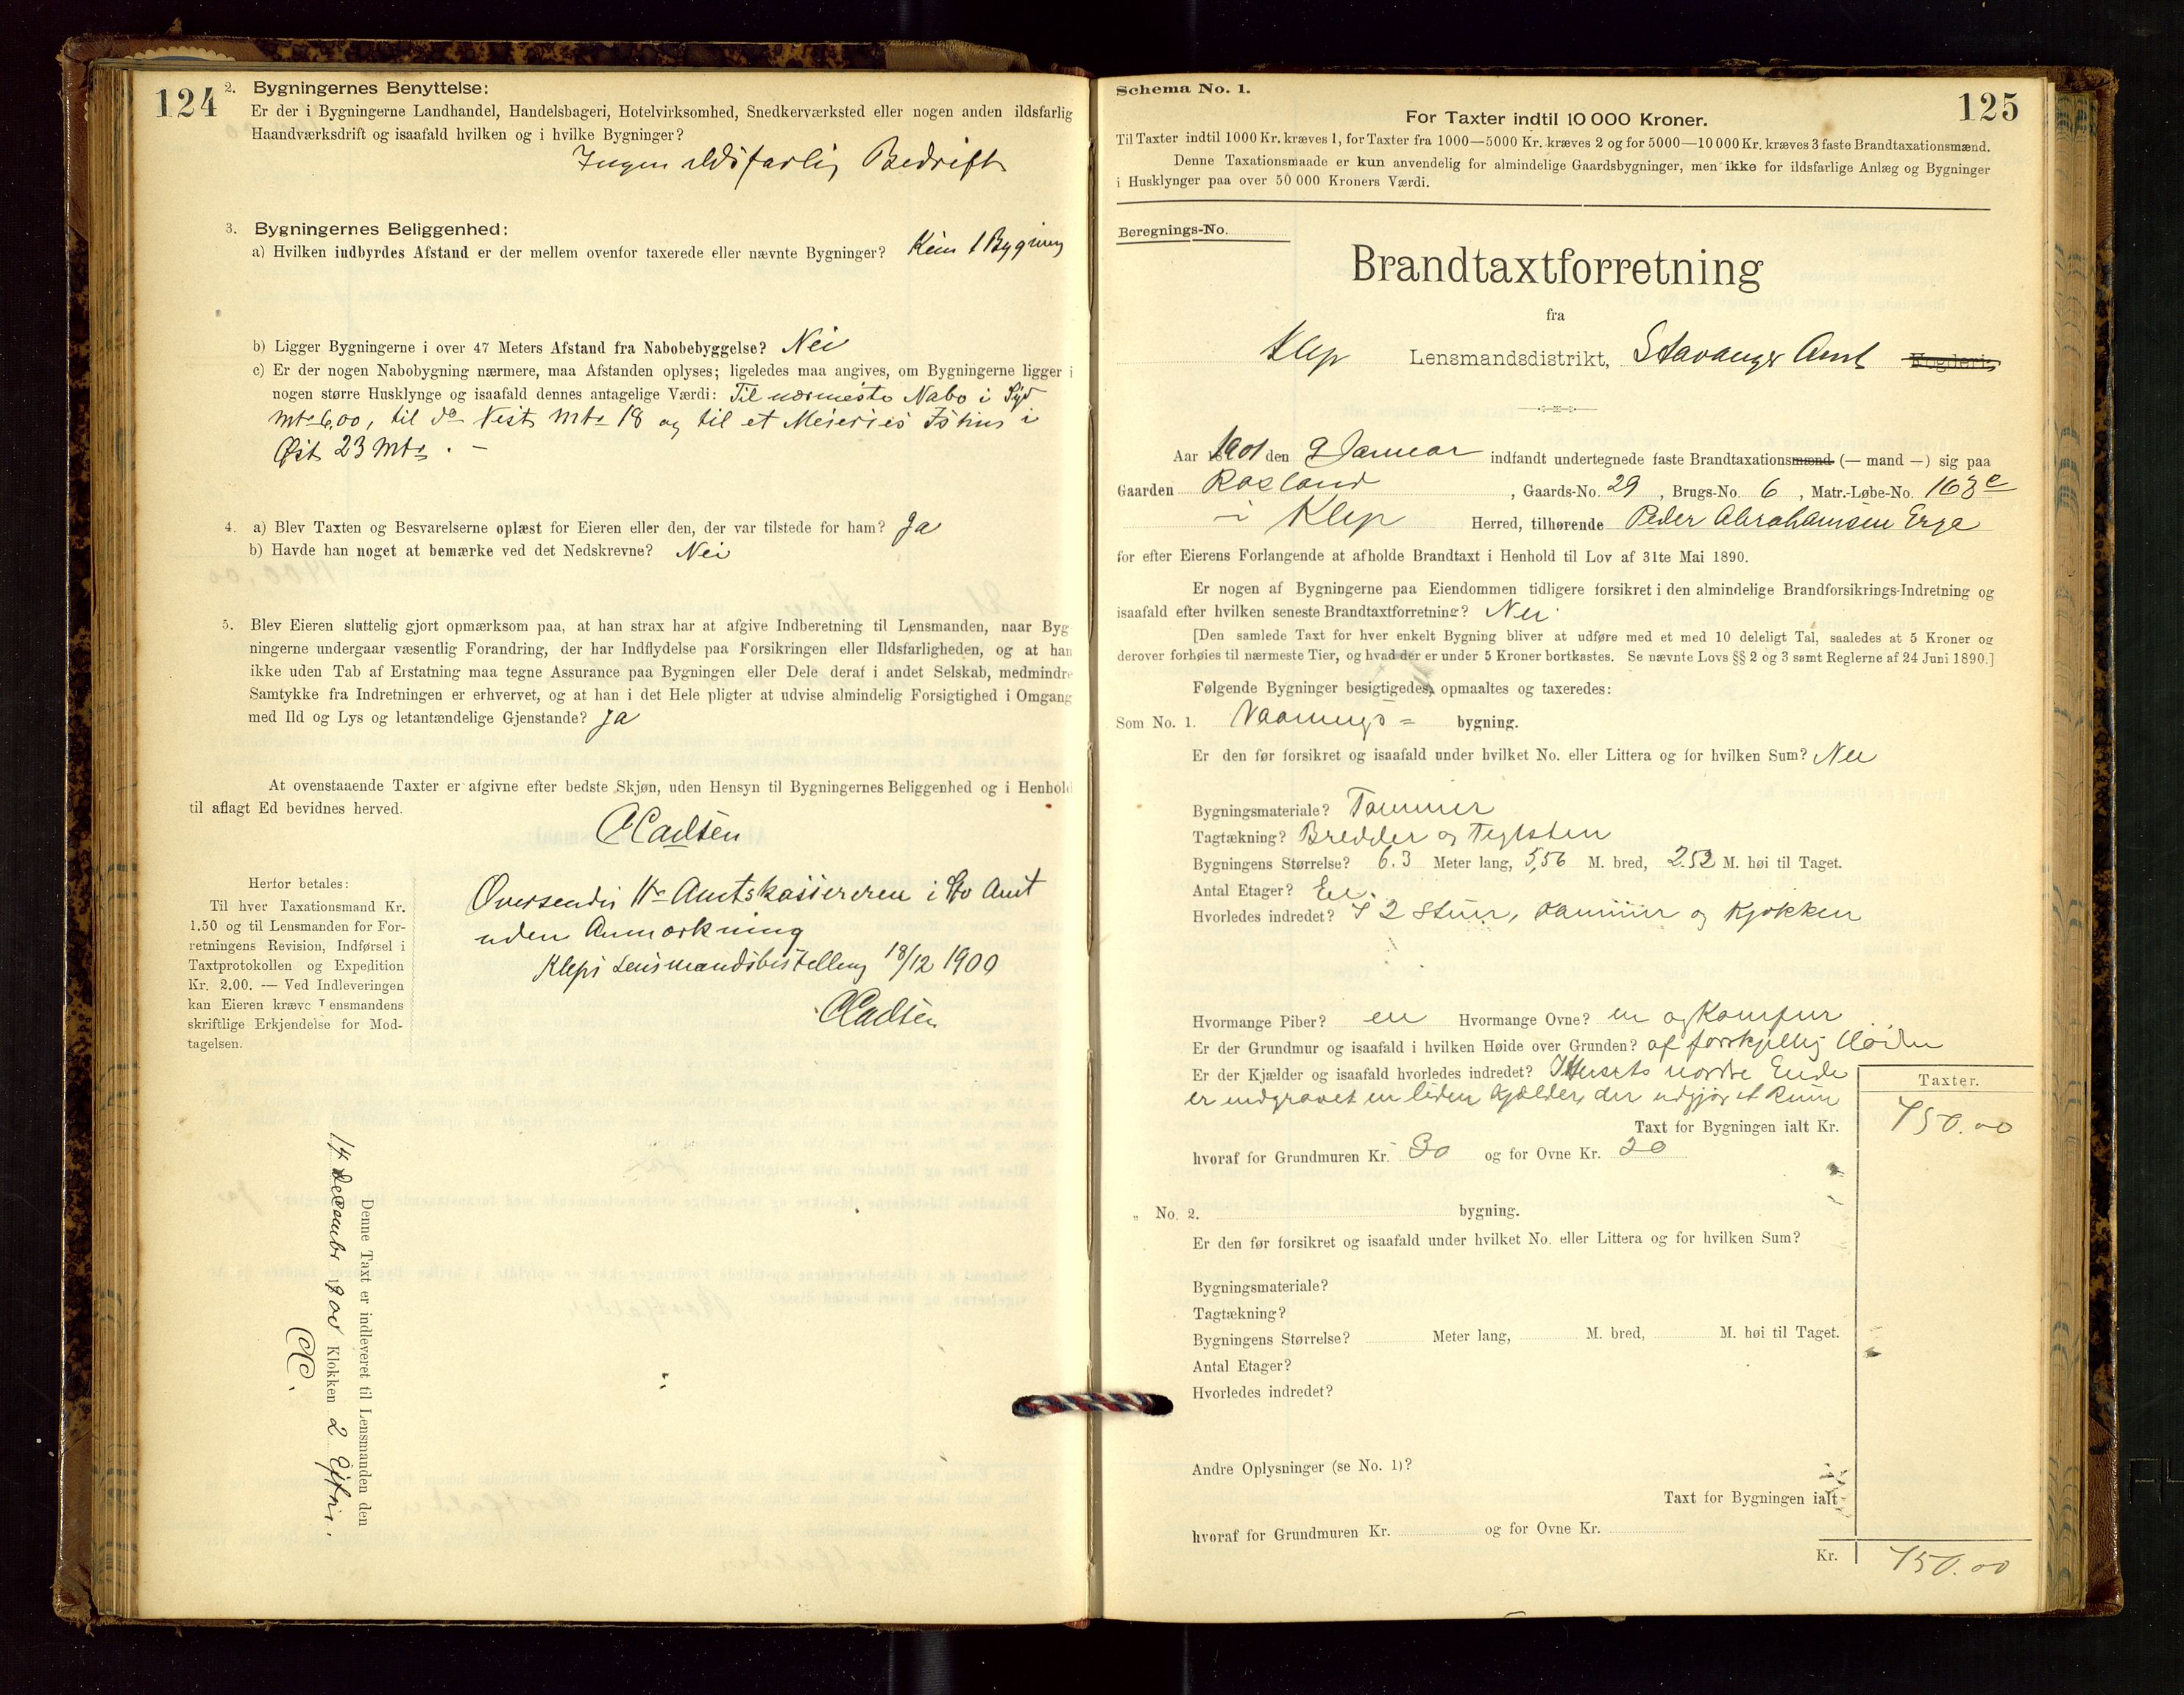 124
2. Bygningernes Benyttelse:
Er der i Bygningerne Landhandel, Handelsbageri, Hotelvirksomhed, Snedkerværksted eller nogen anden ildsfarlig
Haandværksdrift og isaafald hvilken og i hvilke Bygninger?
Ingen ildsfarlig Bedrift
3. Bygningernes Beliggenhed:
a) Hvilken indbyrdes Afstand er der mellem ovenfor taxerede eller nævnte Bygninger? Kun 1 Bygning
b) Ligger Bygningerne i over 47 Meters Afstand fra Nabobebyggelse? Nei
c) Er der nogen Nabobygning nærmere, maa Afstanden oplyses; ligeledes maa angives, om Bygningerne ligger i
nogen større Husklynge og isaafald dennes antagelige Værdi: Til nærmeste Nabo i Syd
Mtr 6,00, til do Vest Mtr 18 og til et Meieries Ishus i
Øst 23 Mtr. –
4. a) Blev Taxten og Besvarelserne oplæst for Eieren eller den, der var tilstede for ham? Ja
b) Havde han noget at bemærke ved det Nedskrevne? Nei
5. Blev Eieren sluttelig gjort opmærksom paa, at han strax har at afgive Indberetning til Lensmanden, naar Byg
ningerne undergaar væsentlig Forandring, der har Indflydelse paa Forsikringen eller Ildsfarligheden, og at han
ikke uden Tab af Erstatning maa tegne Assurance paa Bygningen eller Dele deraf i andet Selskab, medmindre
Samtykke fra Indretningen er erhvervet, og at han i det Hele pligter at udvise almindelig Forsigtighed i Omgang
med Ild og Lys og letantændelige Gjenstande? Ja
At ovenstaaende Taxter er afgivne efter bedste Skjøn, uden Hensyn til Bygningernes Beliggenhed og i Henhold
til aflagt Ed bevidnes herved.
Herfor betales:
Til hver Taxationsmand Kr.
1.50 og til Lensmanden for For-
retningens Revision, Indførsel i
Taxtprotokollen og Expedition
Kr. 2.00. — Ved Indleveringen
kan Eieren kræve Lensmandens
skriftlige Erkjendelse for Mod-
tagelsen.
Oversendes Hr Amtskassereren i Stv Amt
uden Anmærkning
Kleps Lensmandsbestilling 18/12 1900
Denne Taxt er indleveret til Lensmanden den
14 December 1900 Klokken 2 Efter.
Schema No. 1.
125
For Taxter indtil 10 000 Kroner.
Til Taxter indtil 1000 Kr. kræves 1, for Taxter fra 1000—5000 Kr. kræves 2 og for 5000—10 000 Kr. kræves 3 faste Brandtaxationsmænd.
Denne Taxationsmaade er kun anvendelig for almindelige Gaardsbygninger, men ikke for ildsfarlige Anlæg og Bygninger
i Husklynger paa over 50 000 Kroners Værdi.
Beregnings-No.
Brandtaxtforretning
fra
Klep Lensmandsdistrikt, Stavanger Amt Fogderi.
Aar 1901 den 9 Januar indfandt undertegnede faste Brandtaxationsmænd (— mand —) sig paa
Gaarden Roeland, Gaards-No. 29, Brugs-No. 6, Matr.-Løbe-No. 163c
i Klep Herred, tilhørende Peder Abrahamsen Erga
for efter Eierens Forlangende at afholde Brandtaxt i Henhold til Lov af 31te Mai 1890.
Er nogen af Bygningerne paa Eiendommen tidligere forsikret i den almindelige Brandforsikrings-Indretning og
isaafald efter hvilken seneste Brandtaxtforretning? Nei
[Den samlede Taxt for hver enkelt Bygning bliver at udføre med et med 10 deleligt Tal, saaledes at 5 Kroner og
derover forhøies til nærmeste Tier, og hvad der er under 5 Kroner bortkastes. Se nævnte Lovs §§ 2 og 3 samt Reglerne af 24 Juni 1890.]
Følgende Bygninger besigtigedes, opmaaltes og taxeredes:
Som No. 1. Vaanings= bygning.
Er den før forsikret og isaafald under hvilket No. eller Littera og for hvilken Sum? Nei
Bygningsmateriale? Tømmer
Tagtækning? Bredder og Teglsten
Bygningens Størrelse? 6.3 Meter lang, 5,56 M. bred, 2.52 M. høi til Taget.
Antal Etager? En.
Hvorledes indredet? I 2 Stuer, Kammer og Kjøkken
Hvormange Piber? en Hvormange Ovne? en og Komfur
Er der Grundmur og isaafald i hvilken Høide over Grunden? af forskjellig Høide
Er der Kjælder og isaafald hvorledes indredet? I Husets nordre Ende
er indgravet en liden Kjælder, der udgjør et Rum
Taxter.
Taxt for Bygningen ialt Kr. 750.00
hvoraf for Grundmuren Kr. 30 og for Ovne Kr. 20
„ No. 2. bygning.
Er den før forsikret og isaafald under hvilket No. eller Littera og for hvilken Sum?
Bygningsmateriale?
Tagtækning?
Bygningens Størrelse? Meter lang, M. bred, M. høi til Taget.
Antal Etager?
Hvorledes indredet?
Andre Oplysninger (se No. 1)?
Taxt for Bygningen ialt
hvoraf for Grundmuren Kr. og for Ovne Kr.
Kr. 750.00